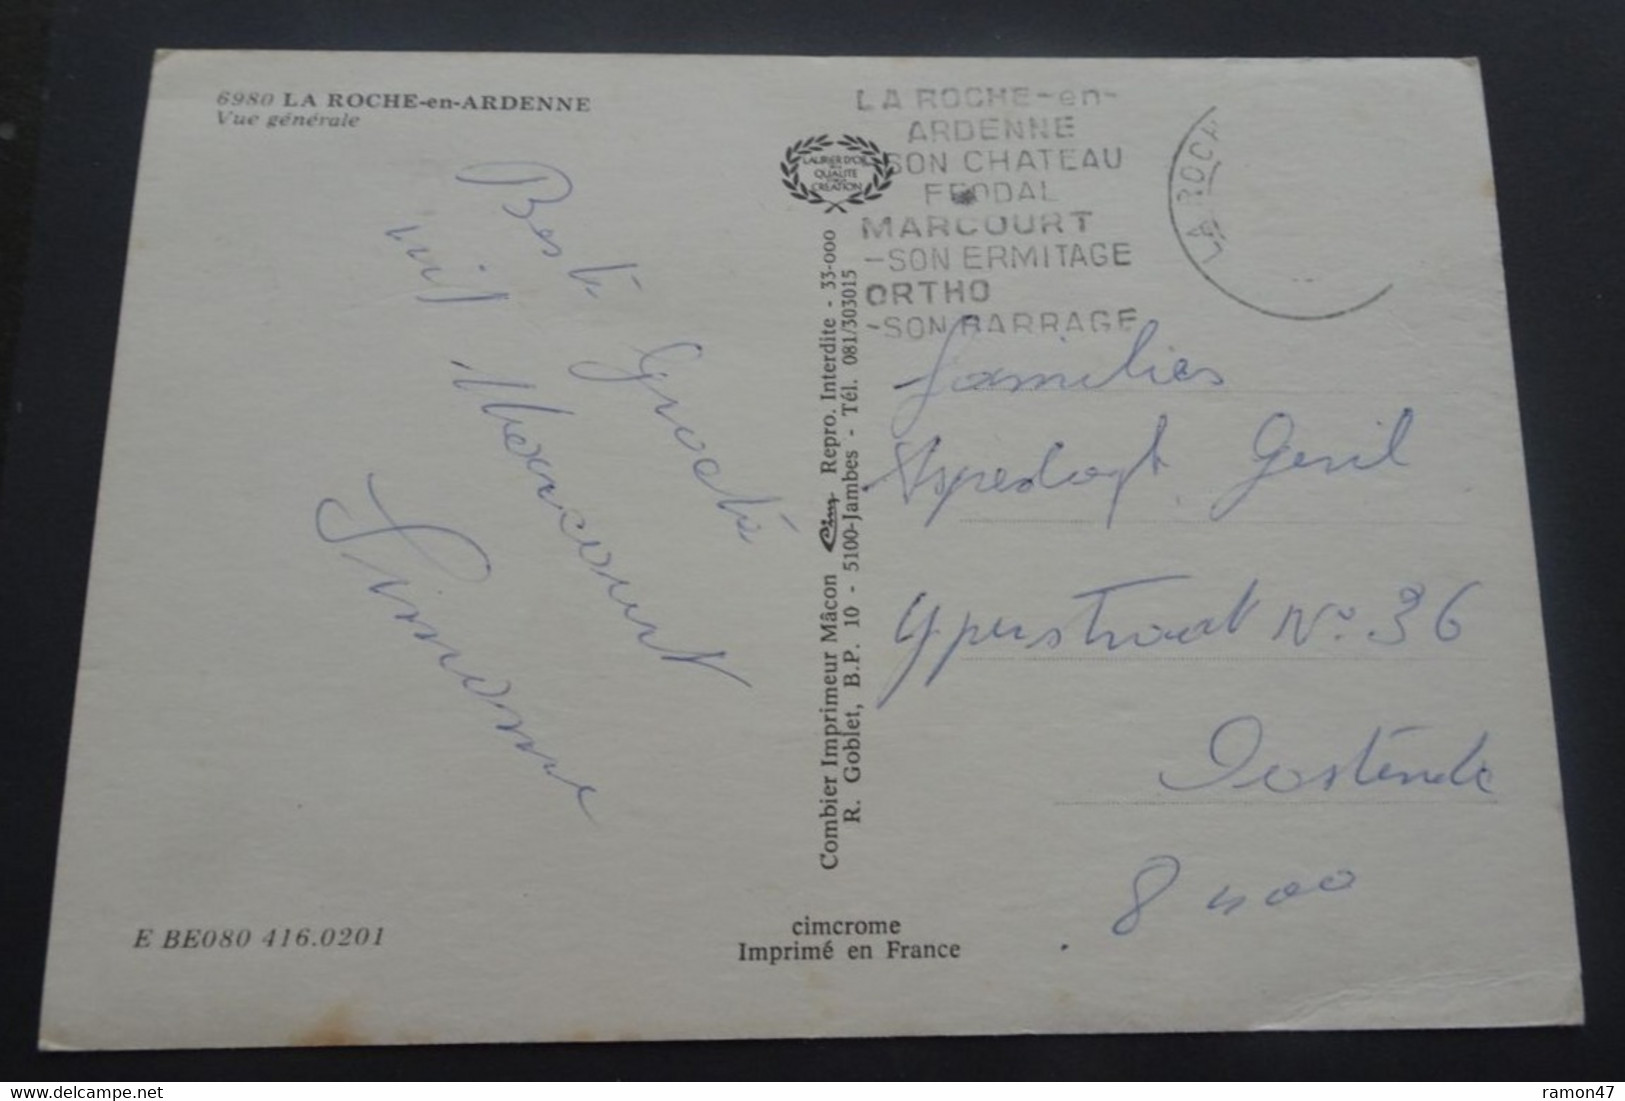 6980 LA ROCHE-en-ARDENNE
Vue générale
LA ROCHE-en-
ARDENNE
-SON CHATEAU
FEODAL
MARCOURT
-SON ERMITAGE
ORTHO
-SON BARRAGE
LA ROCH
LAURIER D'OR
QUALITE
CREATION
Beste Groeten
uit Marcourt
Simonne
Combier Imprimeur Mâcon Cim Repro. Interdite - 33-000
R. Goblet, B.P. 10 - 5100-Jambes - Tél. 081/303015
families
Gevil
Yperstraat No. 36
Oostende
8400
E BE080 416.0201
cimcrome
Imprimé en France
ramon47